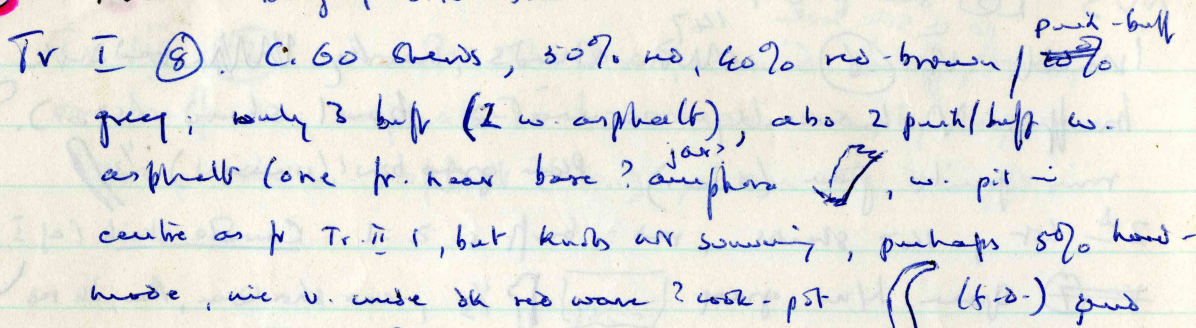 Tr I (8). C. 60 sherds, 50% red, 40% red-brown / pink-buff
grey; only 3 buff (2 w. asphalt), also 2 pink/buff w.
asphalt (one fr. near base ? amphora jar?, w. pit in
centre as fr Tr. II 1, but knobs surviving, perhaps 50% hand-
made, inc v. crude dk red ware ? cook-pot (5-D-) and